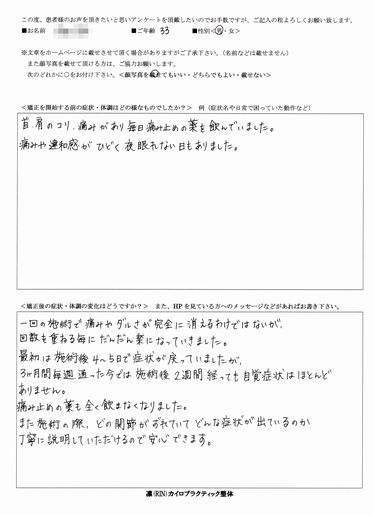 この度、患者様のお声を頂きたいと思いアンケートを頂戴したいのでお手数ですが、ご記入の程よろしくお願い致します。
■お名前 ■ご年齢 33 ■性別＜男・女＞
※文章をホームページに載せさせて頂く場合がありますがご了承下さい。（名前などは載せません）
また顔写真を載せて頂ける方は、ご協力お願いします。
次のどれかに○をお付け下さい。＜顔写真を載せてもいい・どちらでもよい・載せない＞
＜矯正を開始する前の症状・体調はどの様なものでしたか？＞ 例（症状名や日常で困っていた動作など）
首、肩のコリ、痛みがあり毎日痛み止めの薬を飲んでいました。
痛みや違和感がひどく夜眠れない日もありました。
＜矯正後の症状・体調の変化はどうですか？＞ また、HPを見ている方へのメッセージなどがあればお書き下さい。
一回の施術で痛みやダルさが完全に消えるわけではないが、
回数を重ねる毎にだんだん楽になっていきました。
最初は施術後4～5日で症状が戻っていましたが、
3ヶ月間毎週通った今では施術後2週間経っても自覚症状はほとんど
ありません。
痛み止めの薬も全く飲まなくなりました。
また施術の際、どの関節がずれていてどんな症状が出ているのか
丁寧に説明していただけるので安心できます。
凛(RIN)カイロプラクティック整体